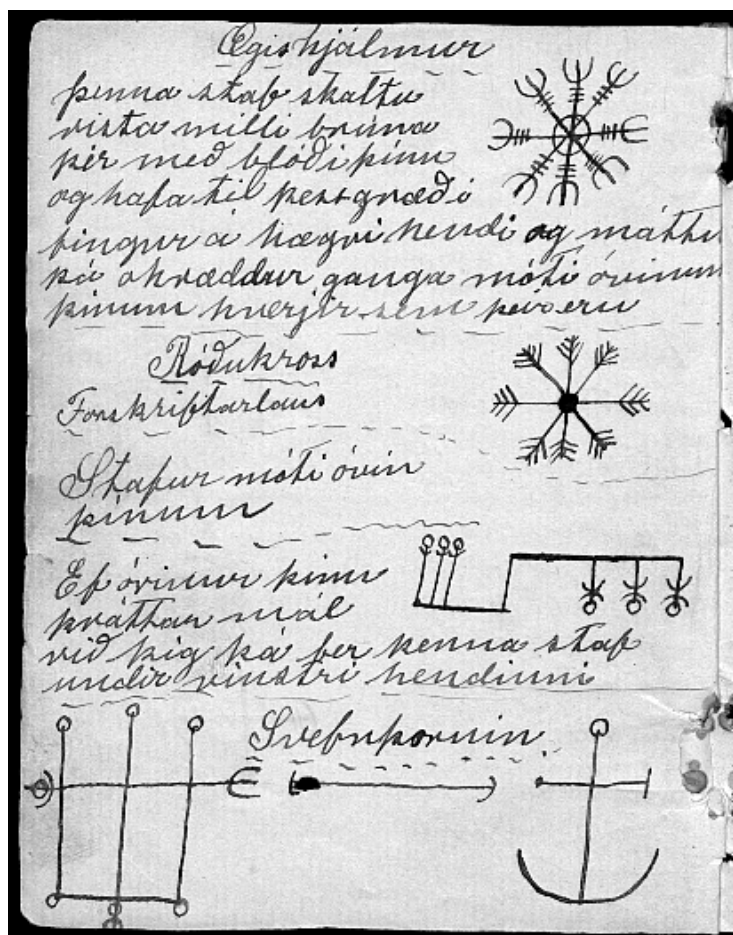 Ægishjálmur
þenna staf skaltu
rista milli brúna
þér með blóði þínu
og hafa til þess græði
fingur á hægri hendi og máttu
þá óhræddur ganga móti óvinum
þínum hverjir sem þeir eru
Róðukross
Forskriftarlaus
Stafur móti óvin
þínum
Ef óvinur þinn
þráttar mál
við þig þá ber þenna staf
undir vinstri hendinni
Svefnþornin